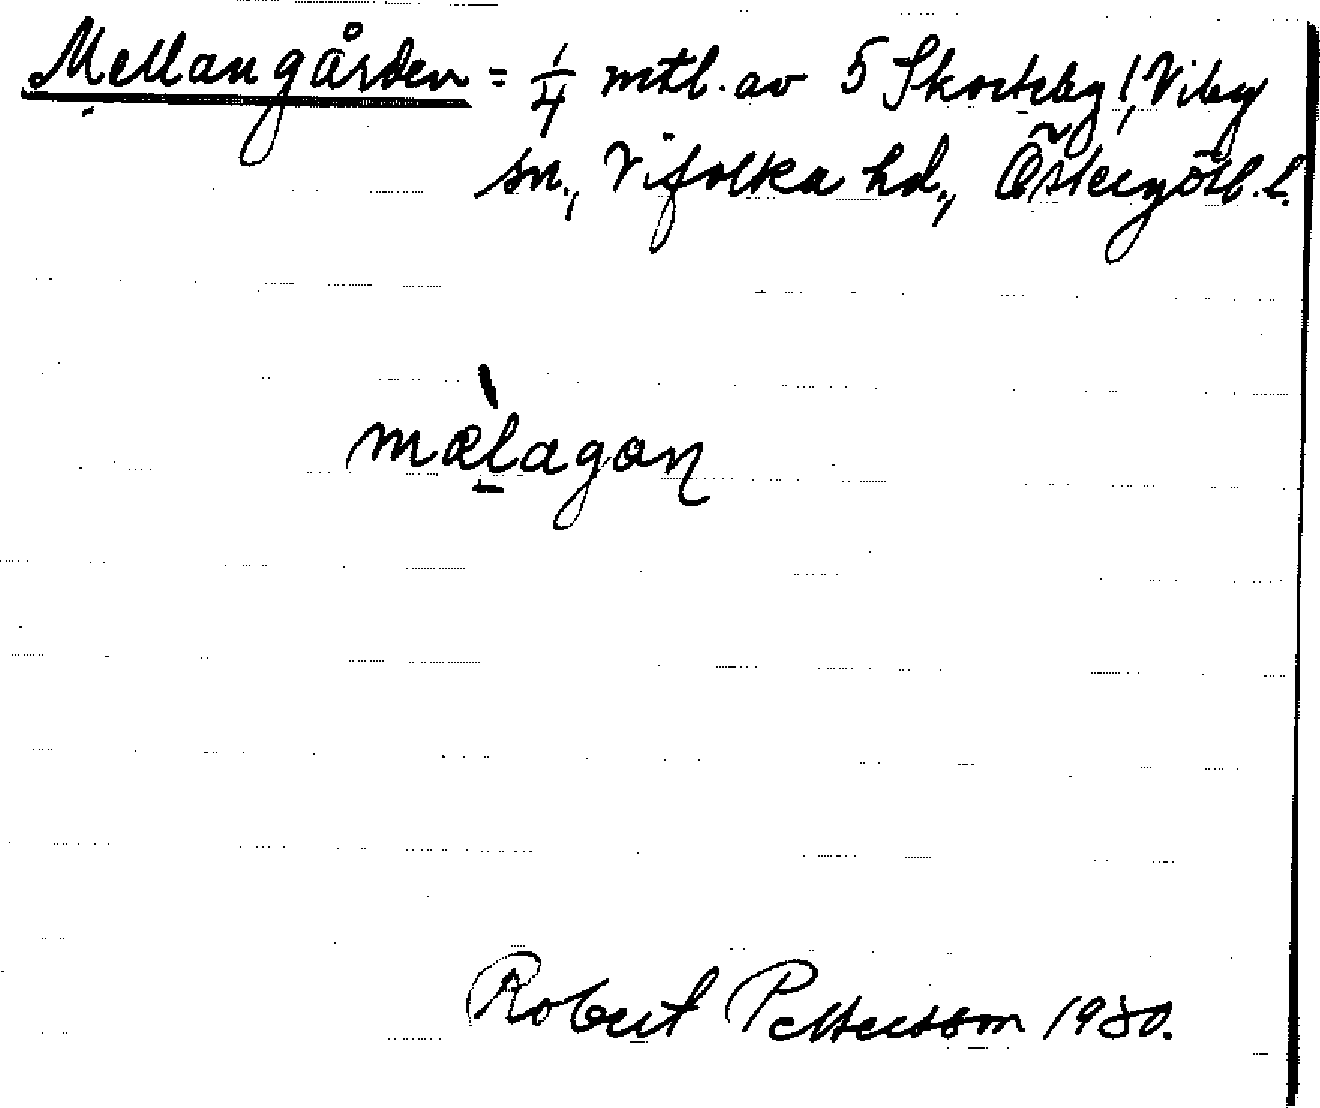 Mellangården = 1/4 mtl. av 5 Skorteby!, Viby
sn., Vifolka hd., Östergötl. l.
mæ̀l̠agaɳ
Robert Pettersson 1930.